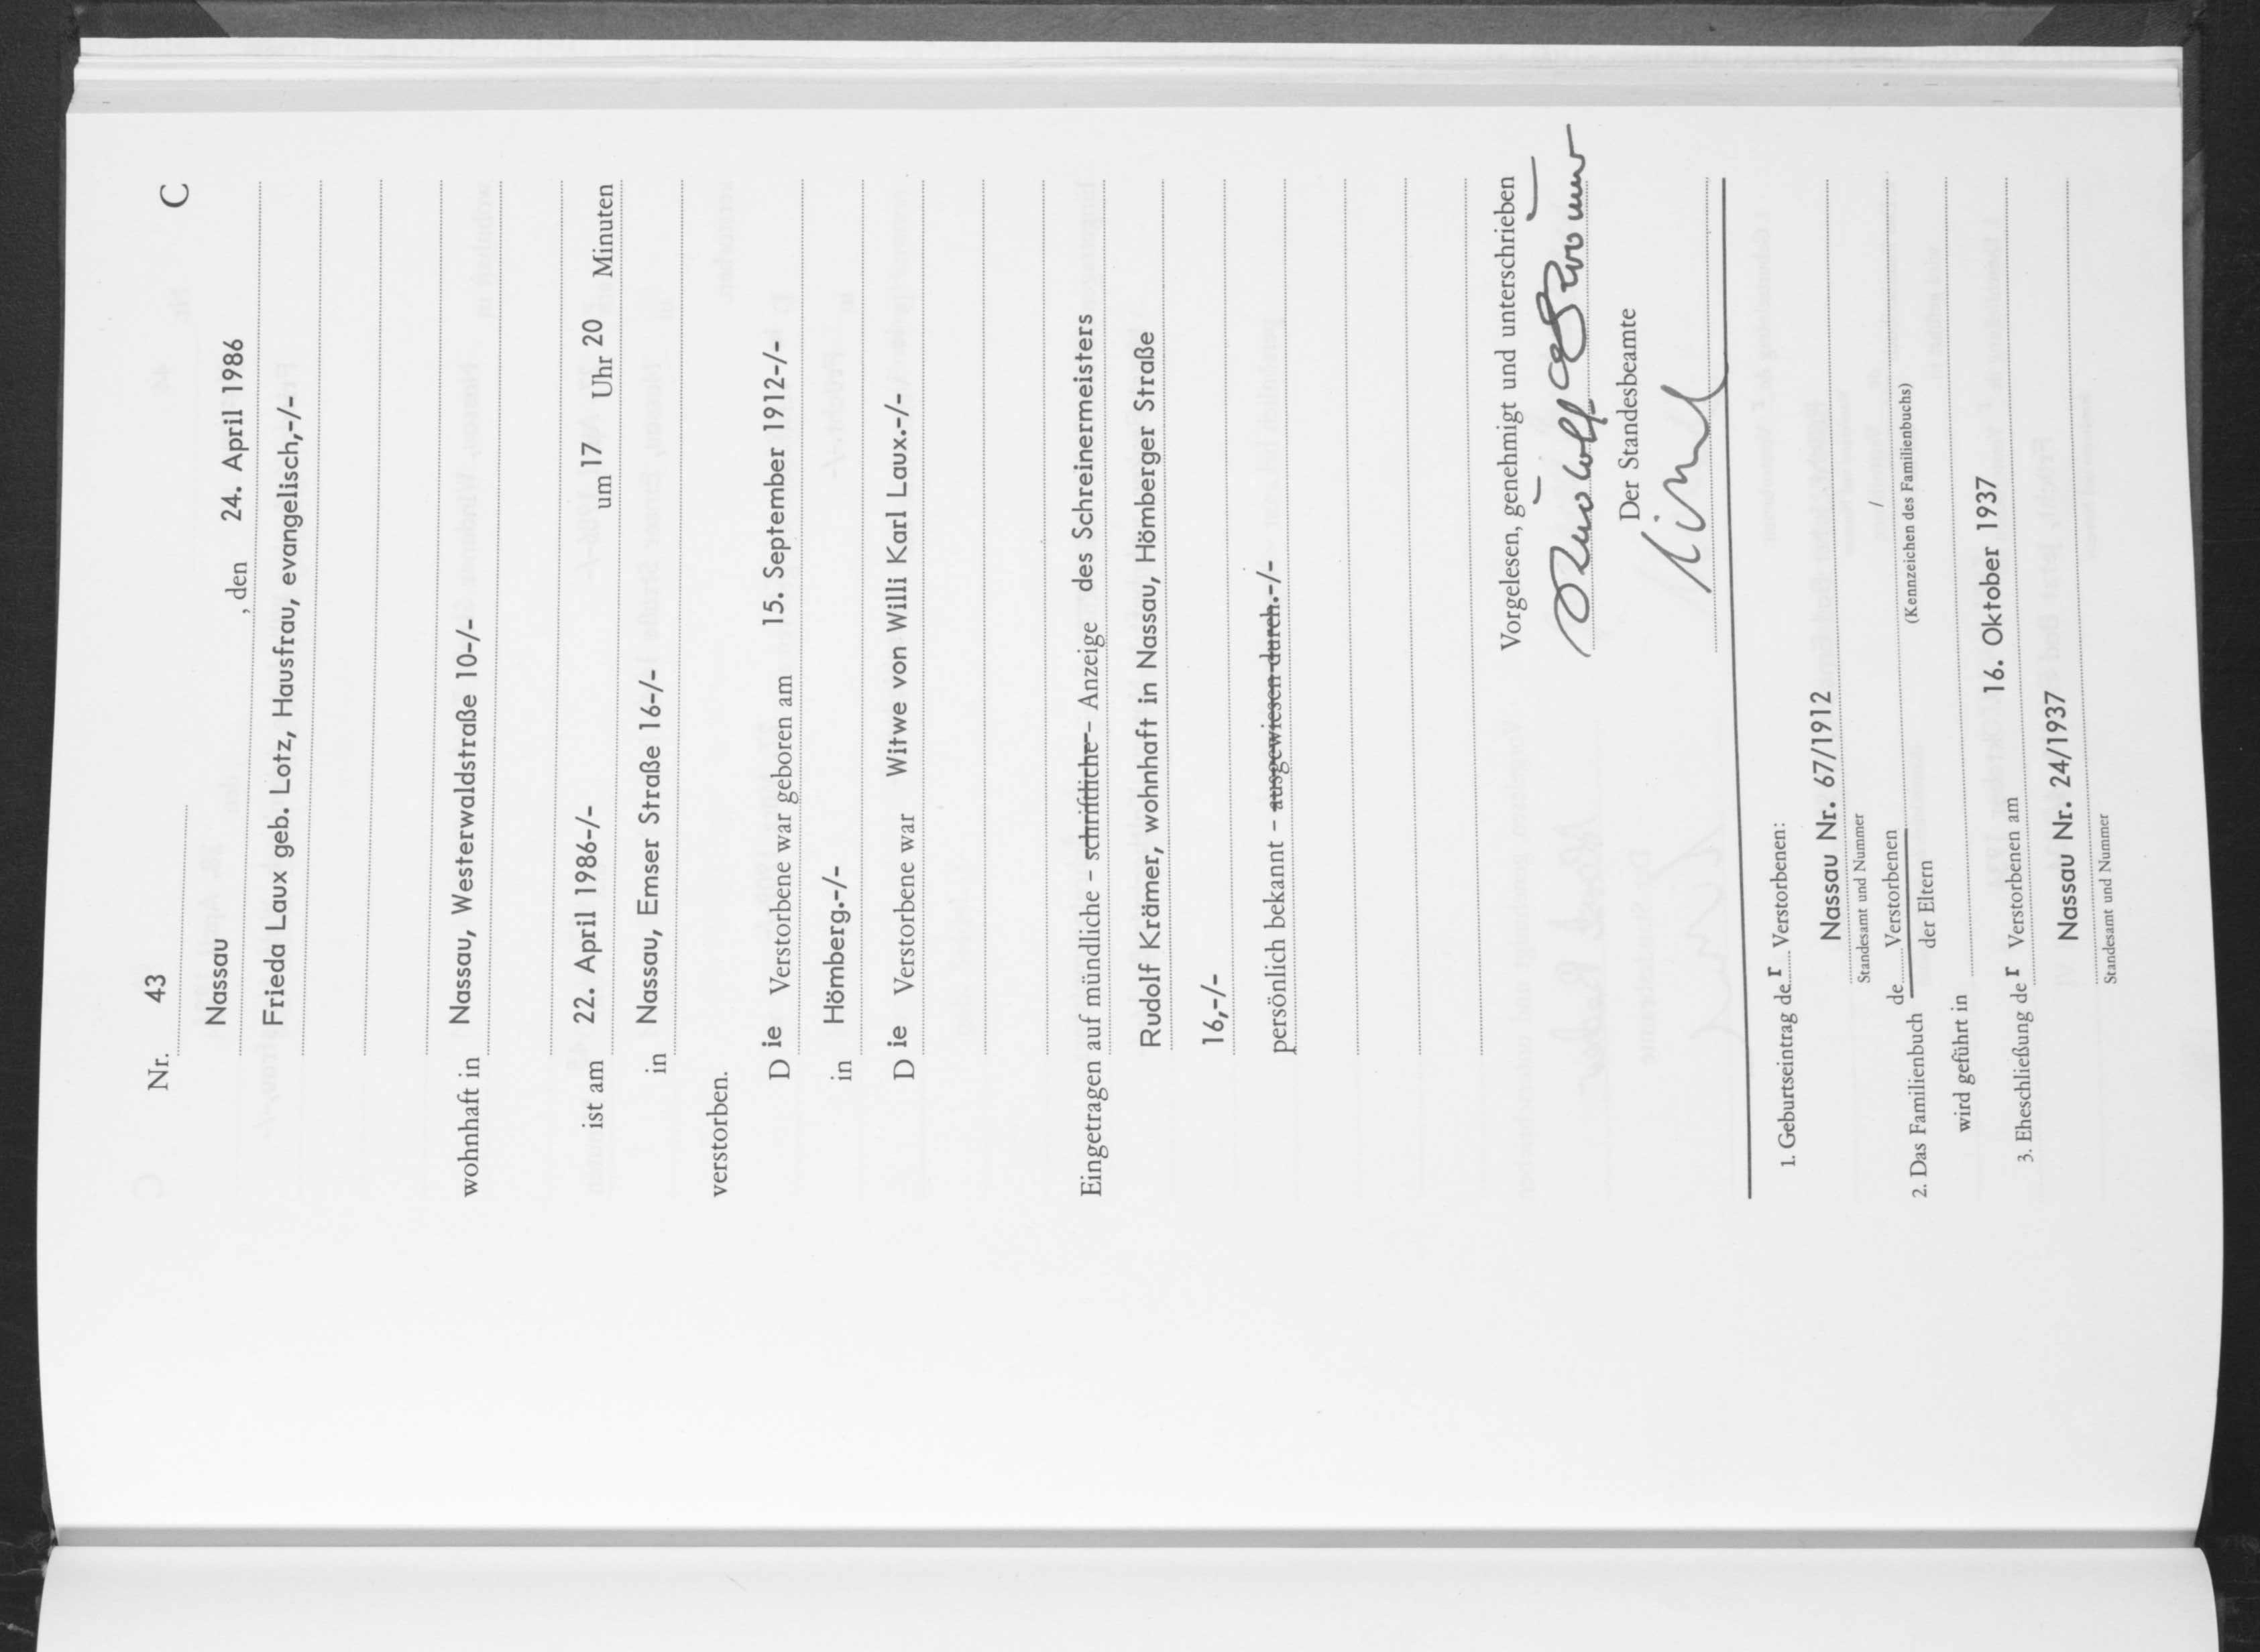 Nr. 43 C
Nassau , den 24. April 1986
Frieda Laux geb. Lotz, Hausfrau, evangelisch,-/-
wohnhaft in Nassau, Westerwaldstraße 10-/-
ist am 22. April 1986-/- um 17 Uhr 20 Minuten
in Nassau, Emser Straße 16-/-
verstorben.
Die Verstorbene war geboren am 15. September 1912-/-
in Hömberg.-/-
Die Verstorbene war Witwe von Willi Karl Laux.-/-
Eingetragen auf mündliche – schriftliche – Anzeige des Schreinermeisters
Rudolf Krämer, wohnhaft in Nassau, Hömberger Straße
16,-/-
persönlich bekannt – ausgewiesen durch.-/-
Vorgelesen, genehmigt und unterschrieben
Rudolf
Der Standesbeamte
1. Geburtseintrag der Verstorbenen:
Nassau Nr. 67/1912
Standesamt und Nummer
2. Das Familienbuch de Verstorbenen /
der Eltern (Kennzeichen des Familienbuchs)
wird geführt in
3. Eheschließung der Verstorbenen am 16. Oktober 1937
Nassau Nr. 24/1937
Standesamt und Nummer